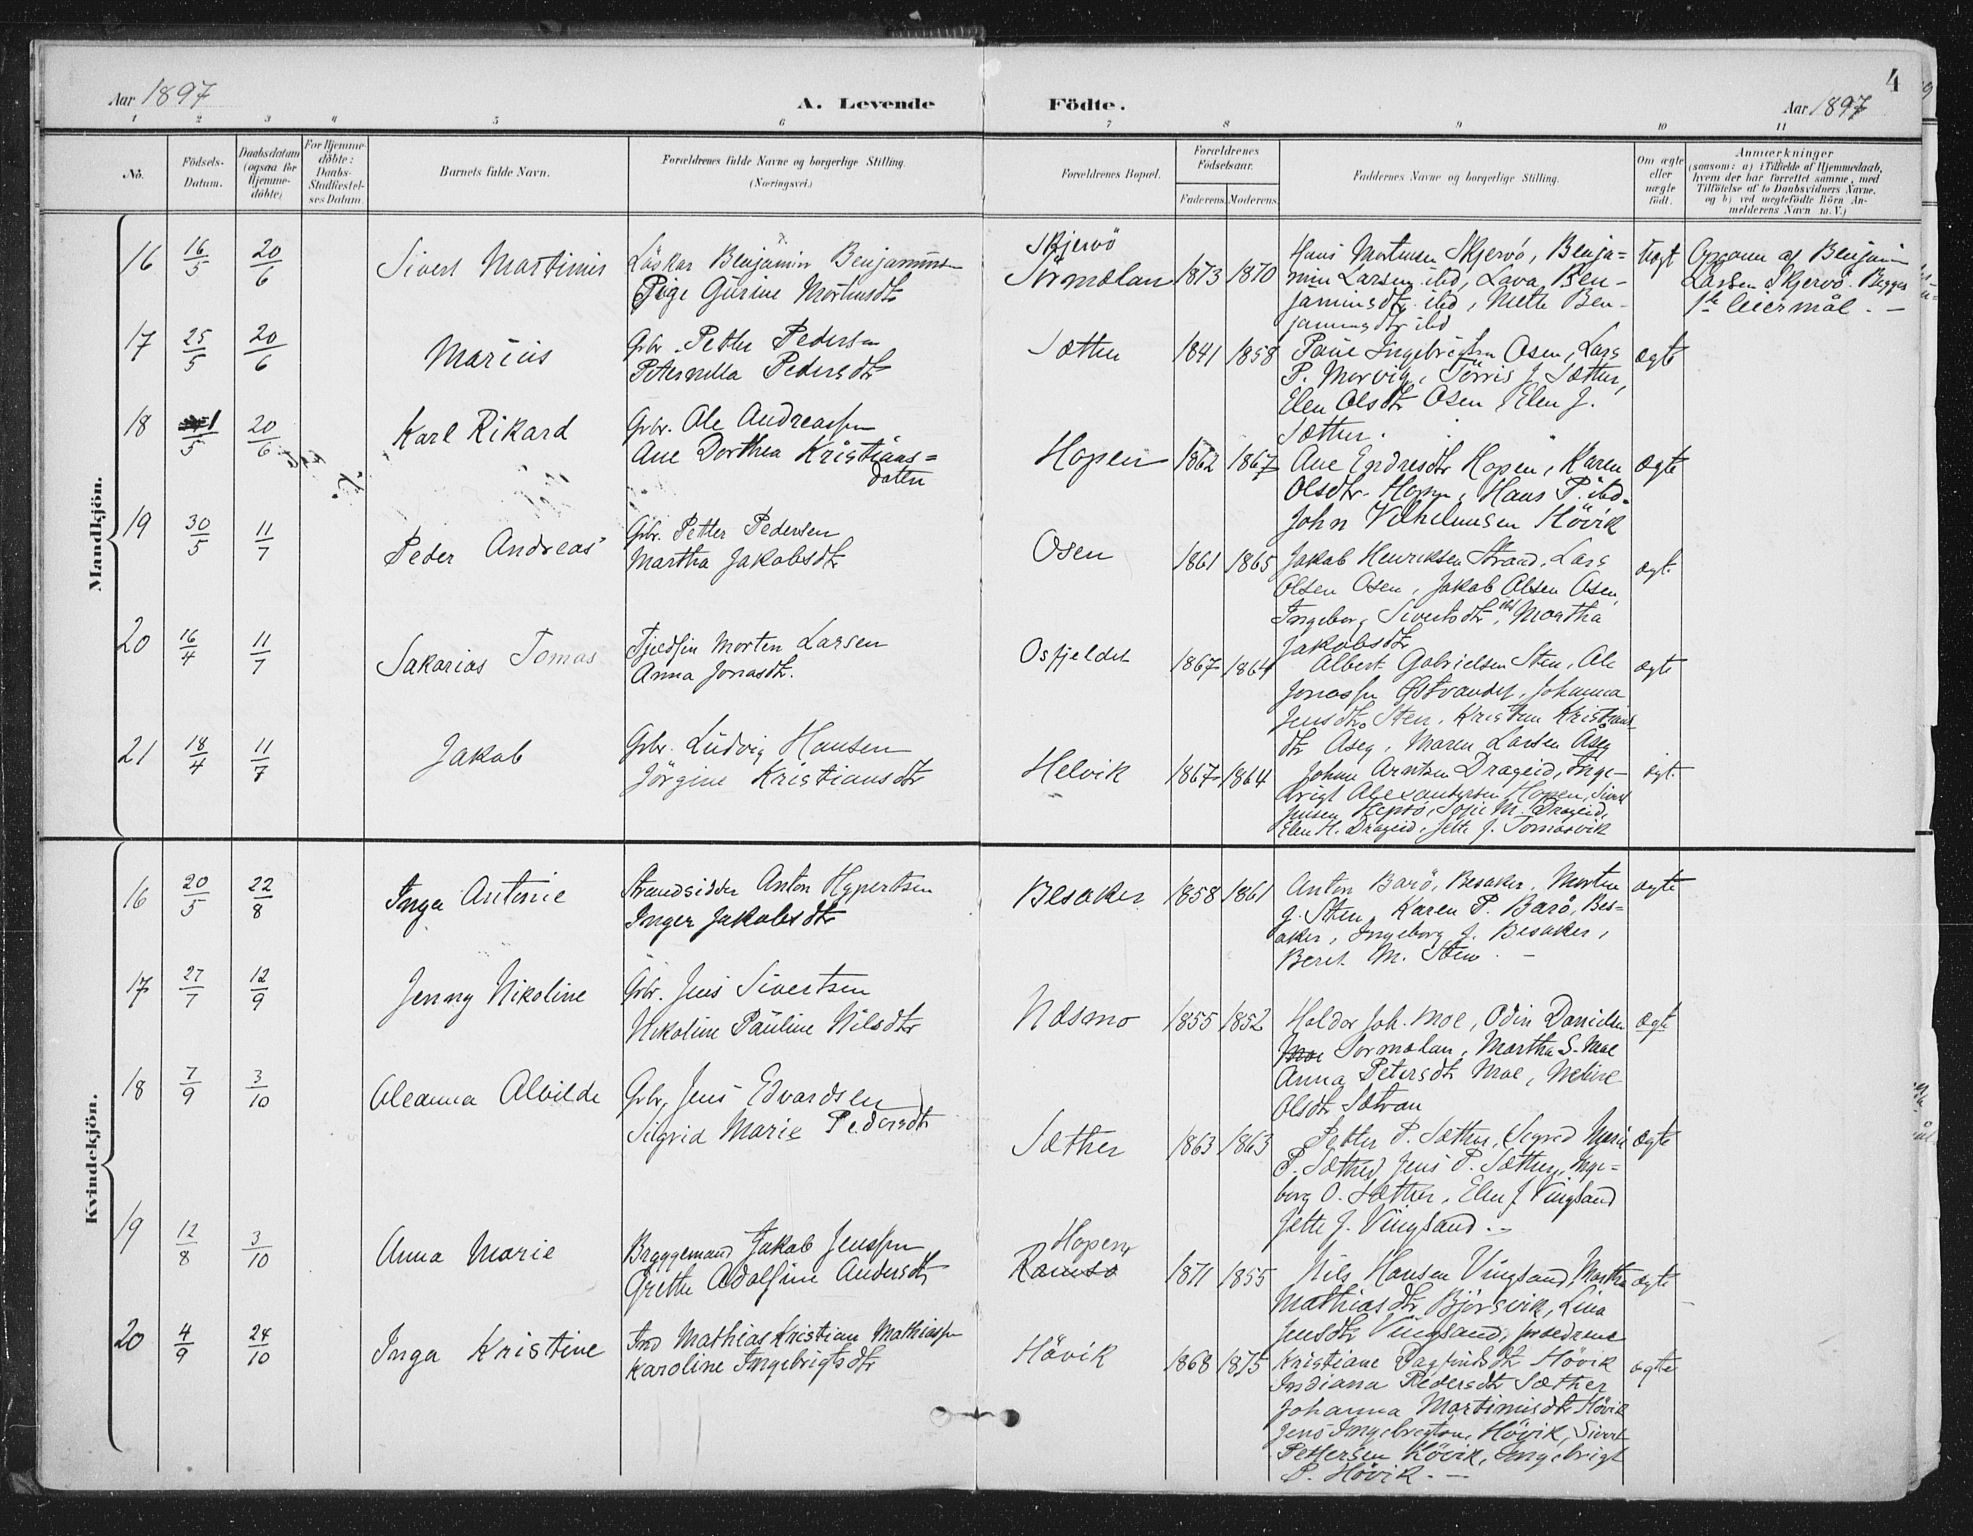 4
Aar 1897
A. Levende Födte.
Aar 1897
1 2 3 4 5 6 7 8 9 10 11
No.
Födsels-Datum.
Daabsdatum (ogsaa for Hjemme-döbte)
For Hjemme-döbte: Daabs-Stadfæstel-ses Datum.
Barnets fulde Navn.
Forældrenes fulde Navne og borgerlige Stilling.
(Næringsvei.)
Forældrenes Bopæl.
Forældrenes Födselsaar.
Faderens. Moderens.
Faddernes Navne og borgerlige Stilling.
Om ægte eller uægte født.
Anmærkninger
(saasom: a) i Tilfælde af Hjemmedaab,
hvem der har forrettet samme, med
Tilföielse af to Daabsvidners Navne.
og b) ved uegtefödte Börn An-
melderens Navn m. V.)
Mandkjön.
16 16/5 20/6 Sivert Martinus
Löskar Benjamin Benjaminsen
Pige Gurine Mortensdtr
Skjervö
Sörmælan 1873 1870
Hans Mortensen Skjervö, Benja-
min Larsen ibd, Lava Ben-
jaminsdtr ibd, Mette Ben-
jaminsdtr ibd
Uægt
Opgave af Benjamin
Larsen Skjervö. Begges
1ste leiermål. -
17 25/5 20/6 Marius
Gbr. Petter Pedersen
Peternella Pedersdtr
Sætter 1841 1858
Paul Ingebrigtsen Osen, Lars
P. Morvig, Törris J. Sætter,
Elen Olsdtr Osen, Elen J.
Sætter.
ægte
18 1/5 20/6 Karl Rikard
Gbr. Ole Andreassen
Ane Dorthea Kristians=
datter
Hopen 1862 1867
Ane Endresdtr Hopen, Karen
Olsdtr. Hopen, Hans P. ibd.
John Vilhelmsen Hövik
ægte
19 30/5 11/7 Peder Andreas
Gbr. Petter Pedersen
Martha Jakobsdtr
Osen 1861 1865
Jakob Henriksen Strand, Lars
Olsen Osen, Jakob Olsen Osen,
Ingeborg Sivertsdtr ibd, Martha
Jakobsdtr
ægt.
20 16/4 11/7 Sakarias Tomas
Morten Larsen
Anna Jonasdtr.
Osfjeldet 1867 1864
Albert Gabrielsen Sten, Ole
Jonassen Östvandet, Johanna
Jensdtr Sten, Kristian Kristians-
dtr Aseg, Maren Larsen Aseg
ægte
21 18/4 11/7 Jakob
Gbr. Ludvig Hansen
Jörgine Kristiansdtr
Helvik 1867 1864
Johan Arntsen Drageid, Inge-
brigt Alexandersen Hopen, Sivert
Jensen Hepsö, Sofie M. Drageid,
Elen H. Drageid, Jette J. Tomasvik
ægt.
Kvindekjön.
16 20/5 22/8 Inga Antonie
Strandsidder Anton Hypertsen
Inger Jakobsdtr
Besaker 1858 1861
Anton Barö, Besaker, Morten
J. Sten, Karen P. Barö, Bes-
aker, Ingeborg J. Besaker,
Beret M. Sten. -
ægte
17 27/7 12/9 Jenny Nikoline
Gbr. Jens Sivertsen
Nikoline Pauline Nilsdtr
Næsmo 1855 1852
Haldor Joh. Moe, Odin Danielsen
Moe Sørmælan, Martha S. Moe
Anna Petersdtr Moe, Neline
Olsdtr Sætran
ægte
18 7/9 3/10 Oleanna Alvilde
Gbr, Jens Edvardsen
Sigrid Marie Pedersdtr
Sæther 1863 1863
Petter P. Sæther, Sigrid Marie
P. Sæther, Jens P. Sæther, Inge=
borg O. Sæther, Elen J Vingsand
Jette J. Vingsand. -
ægte
19 12/8 3/10 Anna Marie
Bryggemand Jakob Jenssen
Grethe Adolfine Andersdtr
Hopen
Ramsö 1871 1855
Nils Hansen Vingsand, Martha
Mathiasdtr Björsvik, Lina
Jensdtr Vingsand, forældrene
ægte
20 4/9 24/10 Inga Kristine
Ind Mathias Kristian Mathiassen
Karoline Ingebrigtsdtr
Hövik 1868 1875
Kristiane Dagfinsdtr Hövik
Indiana Pedersdtr Sæther
Johanna Martinusdtr Hövik
Jens Ingebrigtsen, Hövik, Sivert
Pettersen Hövik, Ingebrigt
P. Hövik. -
ægte